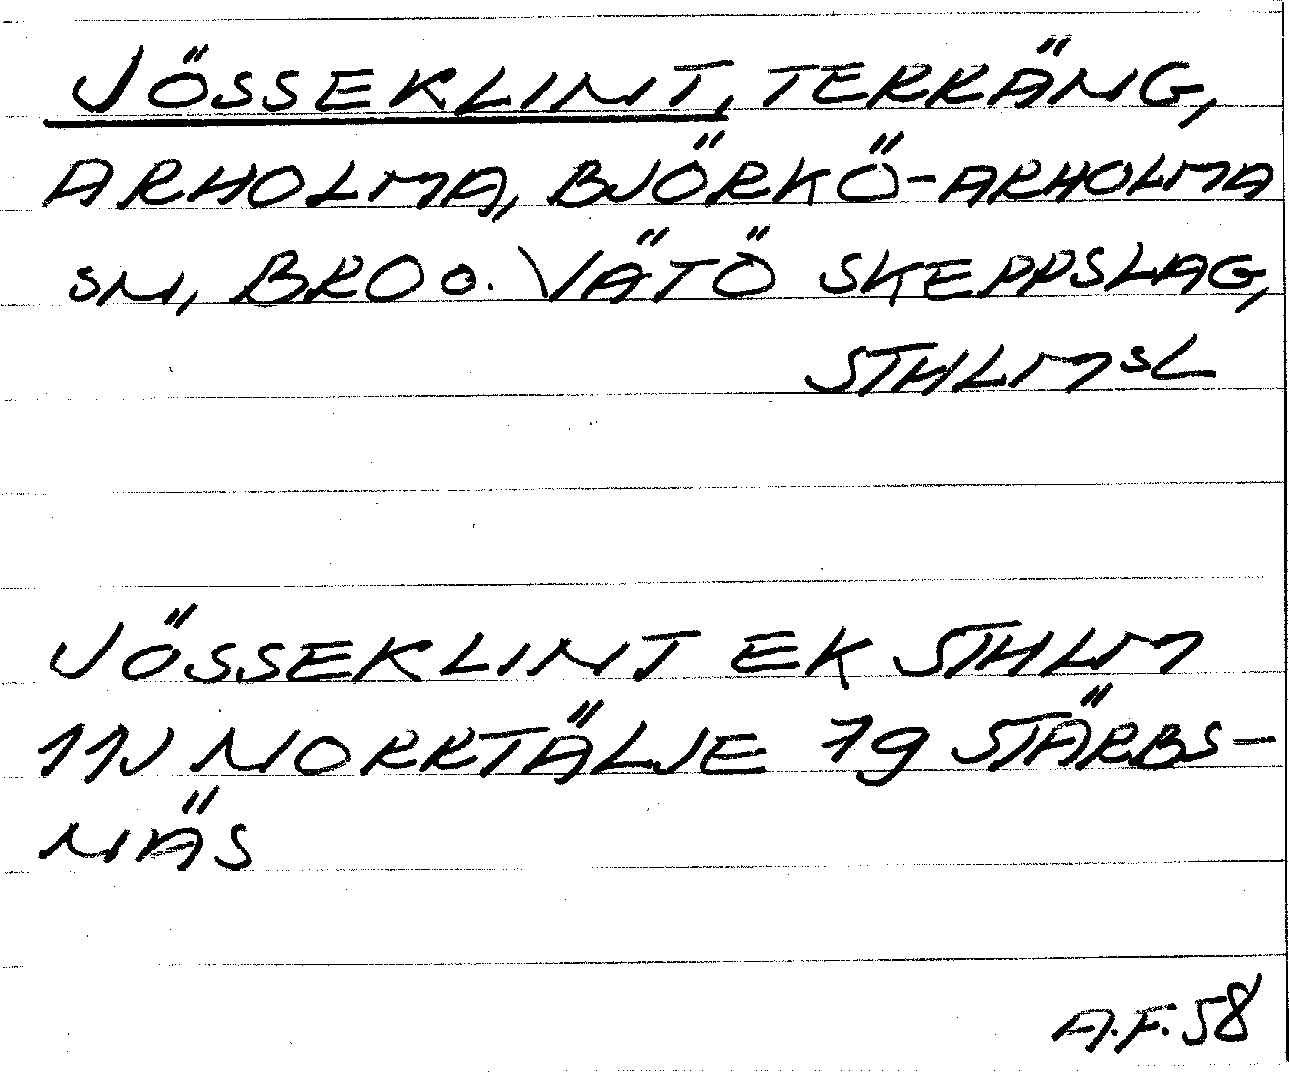 JÖSSEKLINT, TERRÄNG,
ARHOLMA, BJÖRKÖ-ARHOLMA
SN, BRO O. VÄTÖ SKEPPSLAG,
STHLMSL
JÖSSEKLINT EK STHLM
11J NORRTÄLJE 79 STÄRBS-
NÄS
A.F. 58